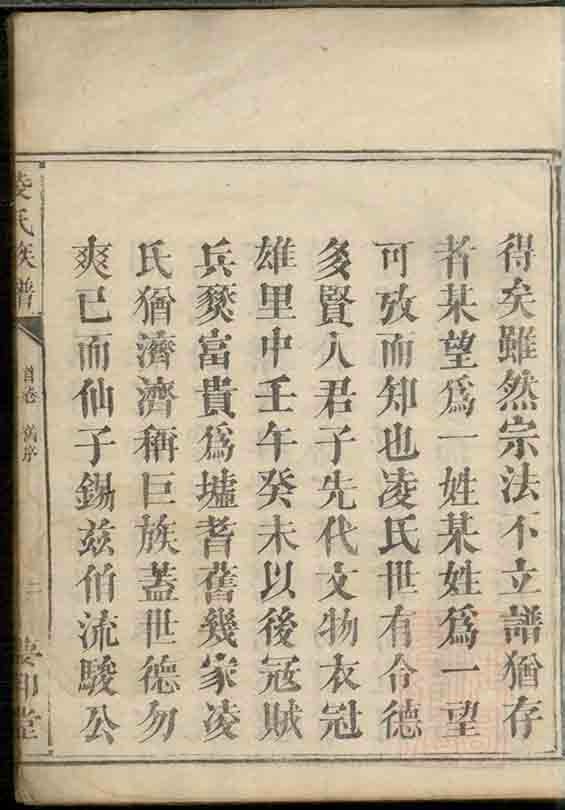 得矣雖然宗法不立譜猶存
者某望爲一姓某姓爲一望
可攷而知也凌氏世有令德
多賢人君子先代文物衣冠
雄里中壬午癸未以後冦賊
兵燹富貴爲墟耆舊幾家凌
氏猶濟濟稱巨族蓋世德勿
爽已而仙子錫兹伯流駿公
凌氏族譜
首卷 舊序
二
堂